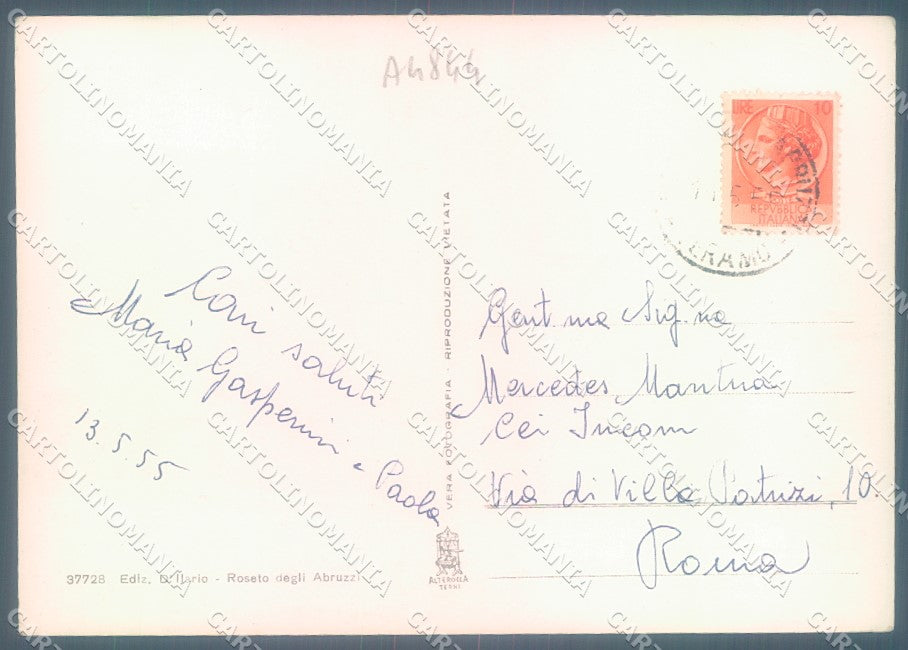 A4844
LIRE 10
REPVBBLICA
ITALIANA
TERAMO
Cari saluti
Maria Gasperini e Paola
13.5.55
VERA FOTOGRAFIA - RIPRODUZIONE VIETATA
Gent.ma Sig.na
Mercedes Mantua
Cei Incom
Via di Villa Patrizi, 10
Roma
37728 Ediz. D'Ilario - Roseto degli Abruzzi
ALTEROCCA
TERNI
CARTOLINOMANIA